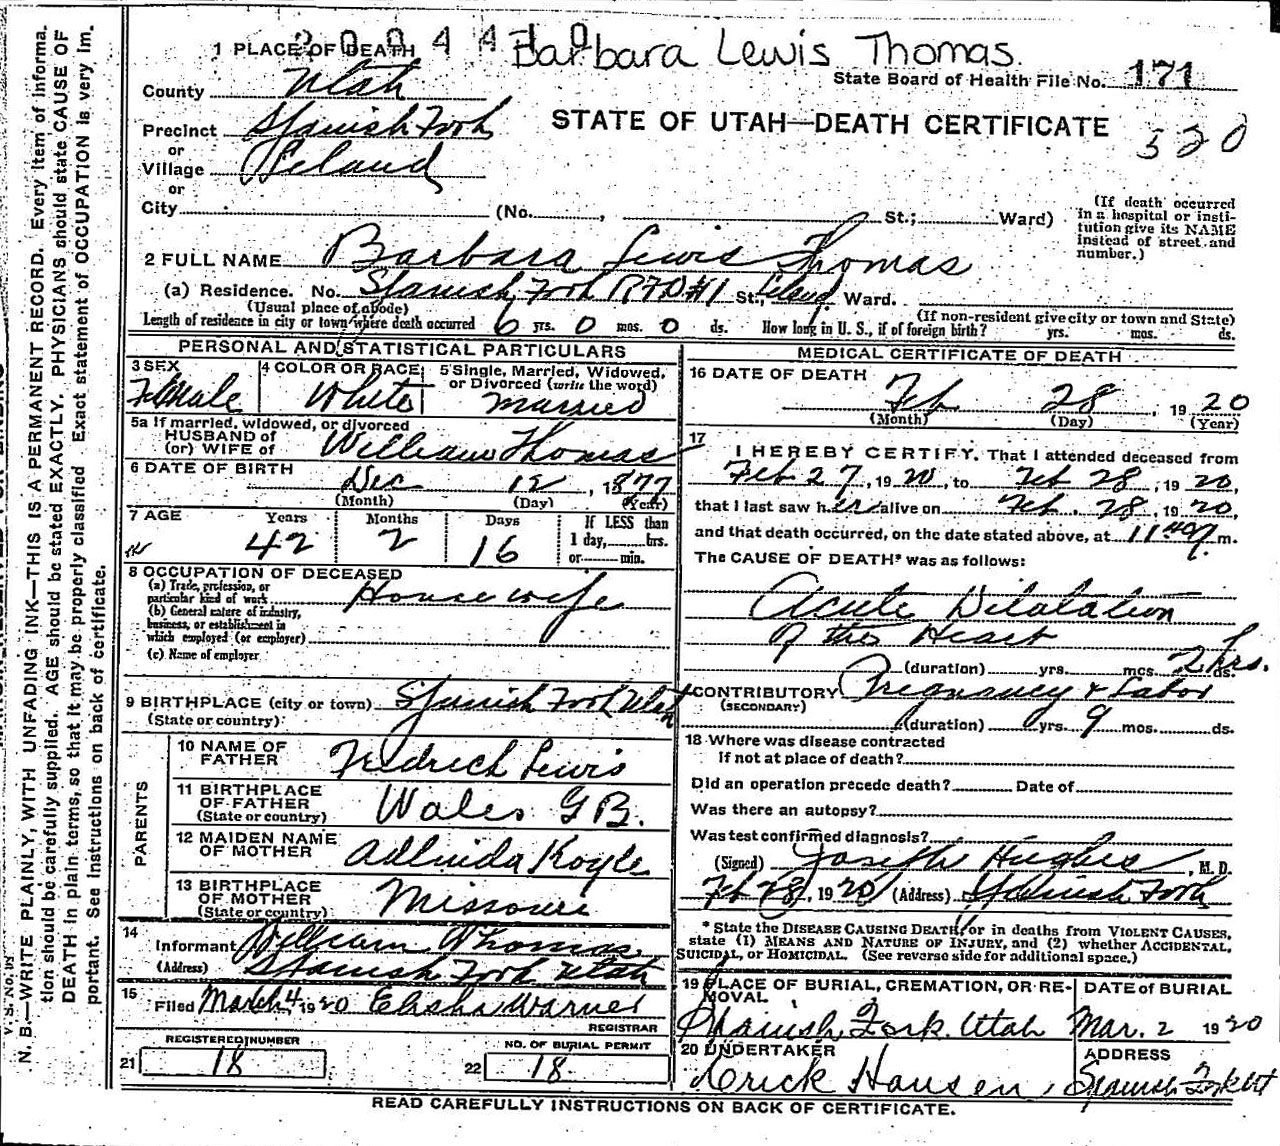 Barbara Lewis Thomas
1 PLACE OF DEATH
State Board of Health File No. 171
County Utah
STATE OF UTAH—DEATH CERTIFICATE
520
Precinct Spanish Fork
or
Village Leland
or
City (No. , St.; Ward)
(If death occurred in a hospital or insti-
tution give its NAME
instead of street and
number.)
2 FULL NAME Barbara Lewis Thomas
(a) Residence. No. Spanish Fork RFD #1 St., Leland Ward.
(Usual place of abode) (If non-resident give city or town and State)
Length of residence in city or town where death occurred 6 yrs. 0 mos. 0 ds. How long in U. S., if of foreign birth? yrs. mos. ds.
PERSONAL AND STATISTICAL PARTICULARS
3 SEX Female
4 COLOR OR RACE White
5 Single, Married, Widowed,
or Divorced (write the word)
Married
5a If married, widowed, or divorced
HUSBAND of
(or) WIFE of William Thomas
6 DATE OF BIRTH Dec 12, 1877
(Month) (Day) (Year)
7 AGE Years Months Days If LESS than
1 day, hrs.
or min.
42 2 16
8 OCCUPATION OF DECEASED
(a) Trade, profession, or
particular kind of work Housewife
(b) General nature of industry,
business, or establishment in
which employed (or employer)
(c) Name of employer
9 BIRTHPLACE (city or town) Spanish Fork Utah
(State or country)
PARENTS
10 NAME OF
FATHER Fredrich Lewis
11 BIRTHPLACE
OF FATHER
(State or country) Wales G B.
12 MAIDEN NAME
OF MOTHER Adlinda Koyle
13 BIRTHPLACE
OF MOTHER
(State or country) Missouri
14
Informant William Thomas
(Address) Spanish Fork Utah
15 Filed March 4 1920 Elisha Warner
REGISTRAR
REGISTERED NUMBER
21 18
NO. OF BURIAL PERMIT
22 18
MEDICAL CERTIFICATE OF DEATH
16 DATE OF DEATH
Feb 28, 1920
(Month) (Day) (Year)
17 I HEREBY CERTIFY, That I attended deceased from
Feb 27, 1920, to Feb 28, 1920,
that I last saw her alive on Feb. 28, 1920,
and that death occurred, on the date stated above, at m.
The CAUSE OF DEATH* was as follows:
Acute Dilatation
of the Heart
(duration) yrs. mos. 2 hrs. ds.
CONTRIBUTORY Pregnancy & Labor
(SECONDARY)
(duration) yrs. 9 mos. ds.
18 Where was disease contracted
If not at place of death?
Did an operation precede death? Date of
Was there an autopsy?
Was test confirmed diagnosis?
(Signed) Joseph Hughes, M. D.
Feb 28, 1920 (Address) Spanish Fork
* State the DISEASE CAUSING DEATH, or in deaths from VIOLENT CAUSES,
state (1) MEANS AND NATURE OF INJURY, and (2) whether ACCIDENTAL,
SUICIDAL, or HOMICIDAL. (See reverse side for additional space.)
19 PLACE OF BURIAL, CREMATION, OR RE-
MOVAL
DATE of BURIAL
Spanish Fork Utah Mar. 2 1920
20 UNDERTAKER ADDRESS
Erick Hansen, Spanish Fork Ut
READ CAREFULLY INSTRUCTIONS ON BACK OF CERTIFICATE.
N. B.—WRITE PLAINLY, WITH UNFADING INK—THIS IS A PERMANENT RECORD. Every item of informa-
tion should be carefully supplied. AGE should be stated EXACTLY. PHYSICIANS should state CAUSE OF
DEATH in plain terms, so that it may be properly classified. Exact statement of OCCUPATION is very im-
portant. See instructions on back of certificate.